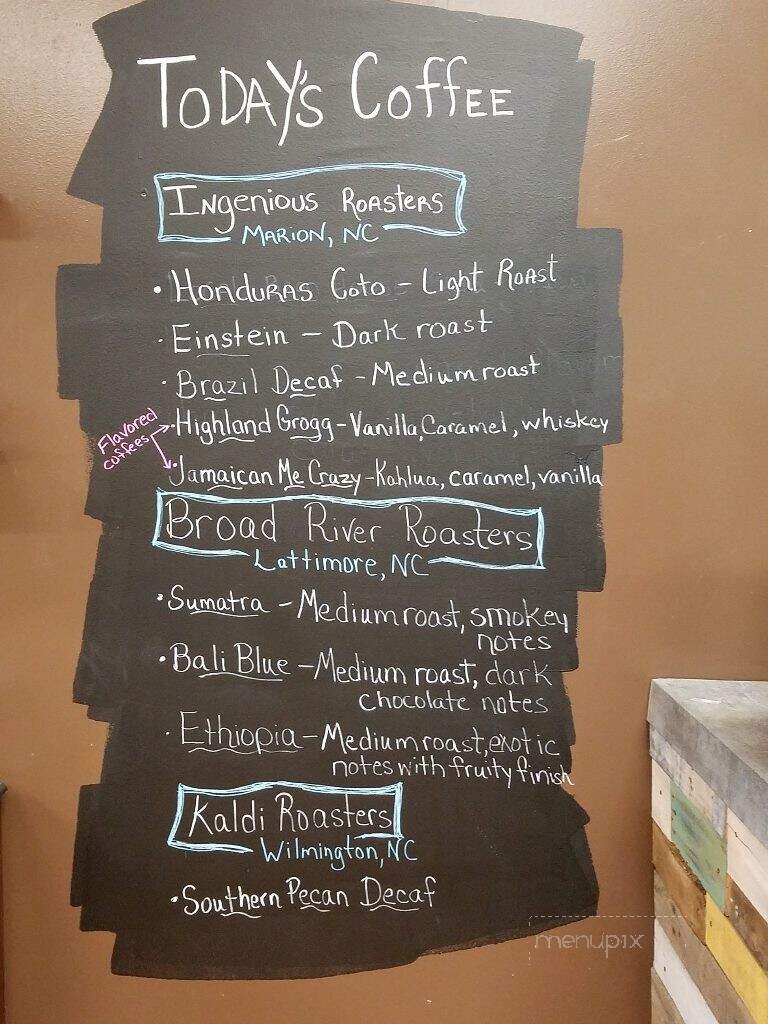 TODAY's CoffEE
INgenious ROASTERS
MARION, NC
• HONDURAS Coto - Light ROAST
· Einstein - Dark roast
· Brazil Decaf - Medium roast
Flavored
coffees
· Highland Grogg - Vanilla, Caramel, whiskey
· Jamaican Me Crazy - Kahlua, caramel, vanilla
Broad River Roasters
Lattimore, NC
• Sumatra - Medium roast, smokey
notes
• Bali Blue - Medium roast, dark
chocolate notes
· Ethiopia - Medium roast, exotic
notes with fruity finish
Kaldi Roasters
Wilmington, NC
• Southern Pecan Decaf
menupix